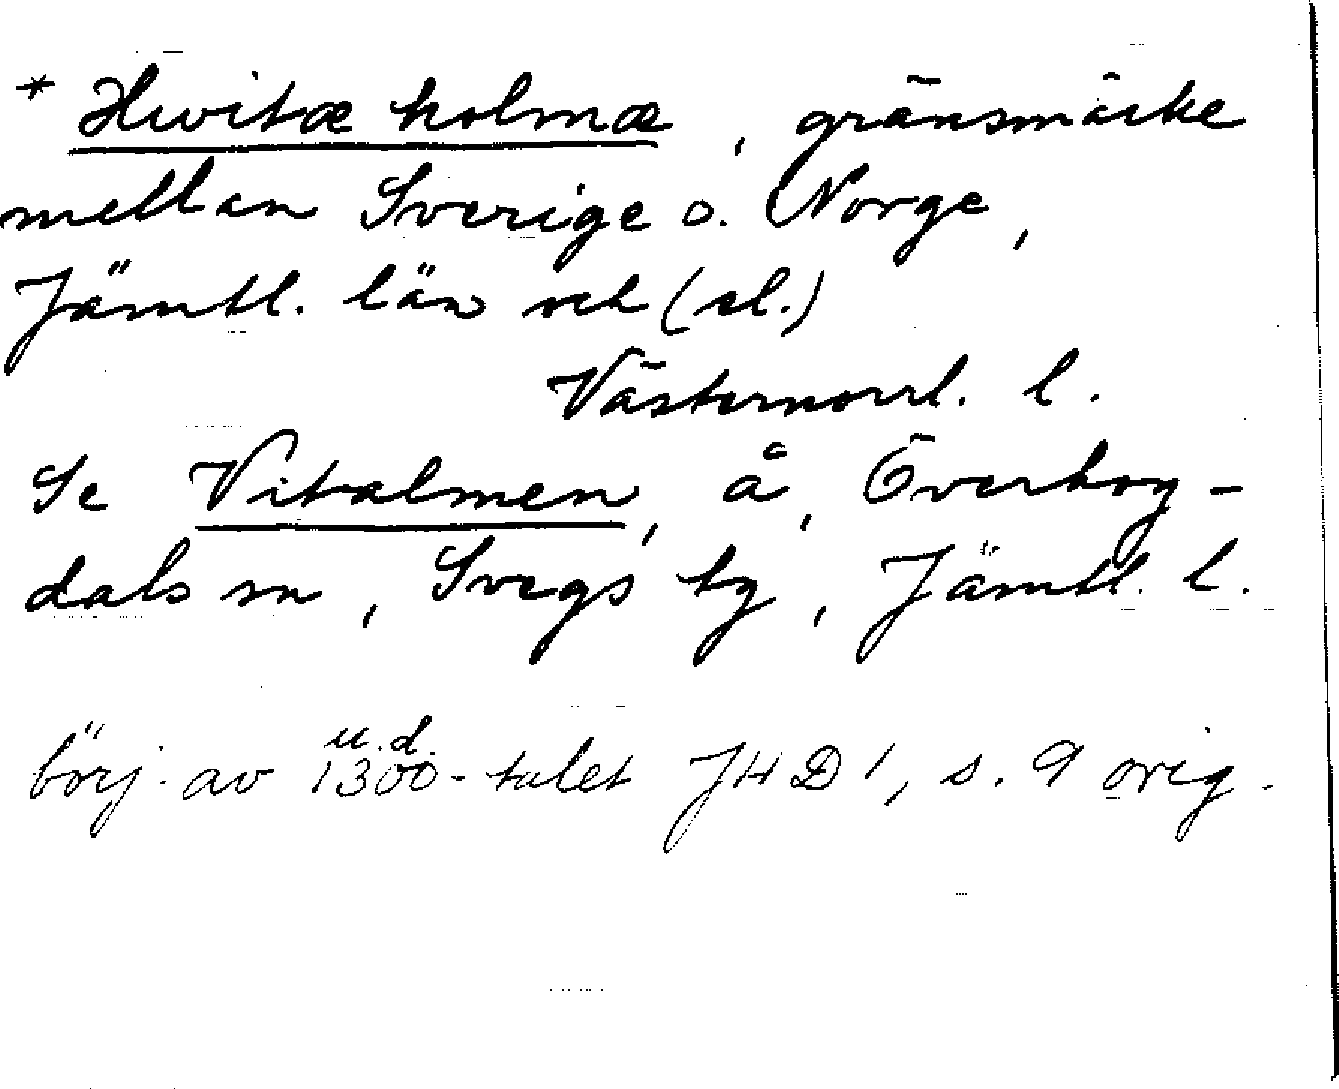 * Hwitæ holmæ, gränsmärke
mellan Sverige o. Norge,
Jämtl. län och (el.)
Västernorrl. l.
Se Vitalmen, å, Överhog-
dals sn, Svegs tg, Jämtl. l.
u.d.
börj. av 1300-talet JHD 1, s. 9 orig.